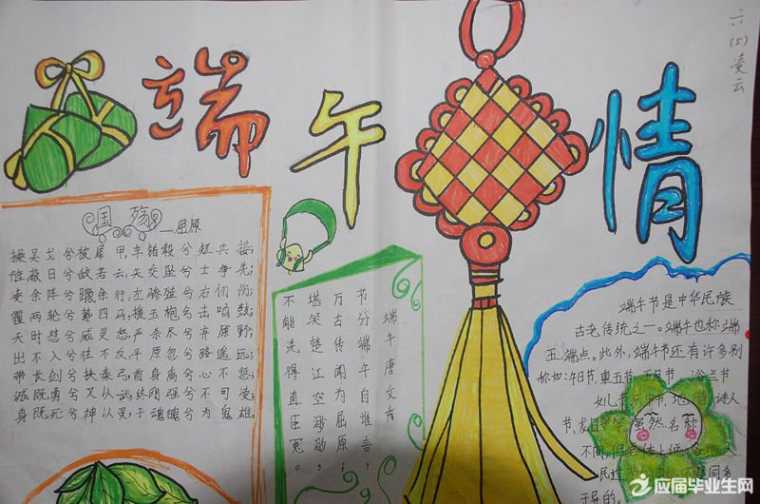 端午情
六(5)凌云
国殇
——屈原
操吴戈兮被犀甲,车错毂兮短兵接;
旌蔽日兮敌若云,矢交坠兮士争先;
凌余阵兮躐余行;左骖殪兮右刃伤;
霾两轮兮絷四马;援玉枹兮击鸣鼓;
天时怼兮威灵怒;严杀尽兮弃原野;
出不入兮往不反,平原忽兮路遥远;
带长剑兮挟秦弓;首身离兮心不惩;
诚既勇兮又以武;终刚强兮不可凌;
身既死兮神以灵;子魂魄兮为鬼雄
端午唐文秀
节分端午自谁言,
万古传闻为屈原;
堪笑楚江空渺渺,
不能洗得直臣冤。
端午节是中华民族
古老传统之一。端午也称端
五,端点。此外,端午节还有许多别
称如:午日节,重五节,节
儿节,诗人
节,虽然名称
不同
民
于异的。
应届毕业生网